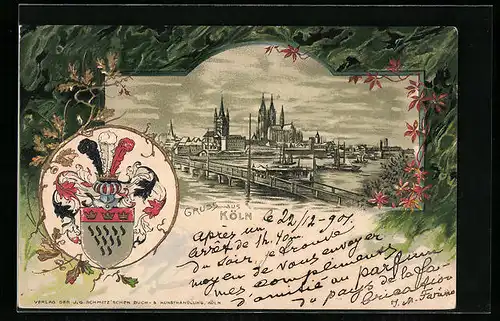 GRUSS AUS
KÖLN
le 22/12-901
Après un
arrêt de 1h.40m
du soir, je trouve
moyen de vous envoyer
mes compliments
d'amitié au parfum
du pays de la fa-
brication
VERLAG DER J.G. SCHMITZ'SCHEN BUCH- & KUNSTHANDLUNG, KÖLN